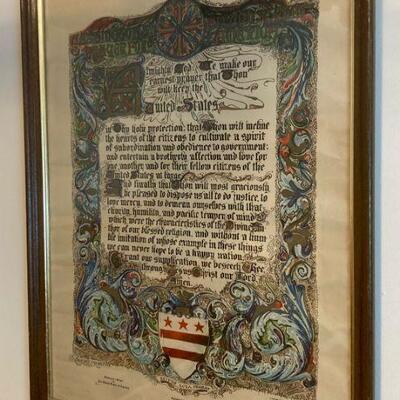 Washington's
Prayer for America
Almighty God: We make our
earnest prayer that Thou
wilt keep the
United States
in Thy holy protection: that Thou wilt incline
the hearts of the citizens to cultivate a spirit
of subordination and obedience to government:
and entertain a brotherly affection and love for
one another and for their fellow citizens of the
United States at large
And finally that Thou wilt most graciously
be pleased to dispose us all to do justice, to
love mercy, and to demean ourselves with that
charity, humility, and pacific temper of mind
which were the characteristics of the Divine Au-
thor of our blessed religion, and without a hum
ble imitation of whose example in these things
we can never hope to be a happy nation
Grant our supplication, we beseech Thee,
through Jesus Christ our Lord
Amen.